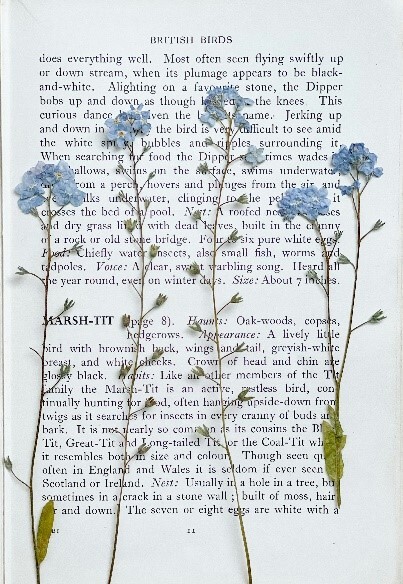 BRITISH BIRDS
does everything well. Most often seen flying swiftly up
or down stream, when its plumage appears to be black-
and-white. Alighting on a favourite stone, the Dipper
bobs up and down as though the knees. This
curious dance even the name. Jerking up
and down in the bird is very difficult to see amid
the white bubbles and ripples surrounding it.
When searching food the Dipper times wades
shallows, swims on the surface, swims underwater
from a perch, hovers and plunges from the air, and
underwater, clinging to the
crosses the bed of a pool. Nest: roofed
and dry grass with dead leaves, built in the
of a rock or old stone bridge. Four to six pure white eggs.
Food: Chiefly water insects, also small fish, worms and
tadpoles. Voice: A clear, sweet warbling song. Heard all
the year round, even on winter days. Size: About 7 inches.
MARSH-TIT (page 8). Haunts: Oak-woods, copses,
hedgerows. Appearance: A lively little
bird with brownish back, wings and tail, greyish-white
breast, and white cheeks. Crown of head and chin are
glossy black. Habits: Like all other members of the Tit
family the Marsh-Tit is an active, restless bird, con-
tinually hunting for food, often hanging upside-down from
twigs as it searches for insects in every cranny of buds and
bark. It is not nearly so common as its cousins the
Tit, Great-Tit and Long-tailed Tit, or the Coal-Tit
it resembles both in size and colour. Though seen
often in England and Wales it is seldom if ever seen
Scotland or Ireland. Nest: Usually in a hole in a tree, but
sometimes in a crack in a stone wall; built of moss, hair
and down. The seven or eight eggs are white with a
11